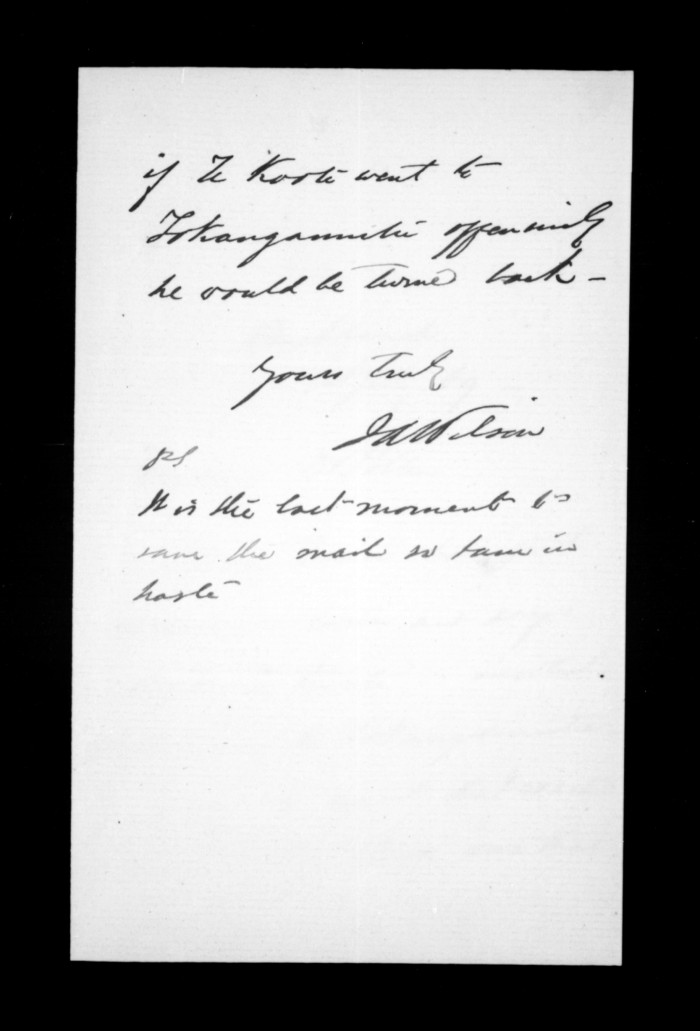 if Te Kooti went to
Tokangamutu offensively
he would be turned back –
Yours truly
J A Wilson
PS
It is the last moment to
save the mail so I am in
haste